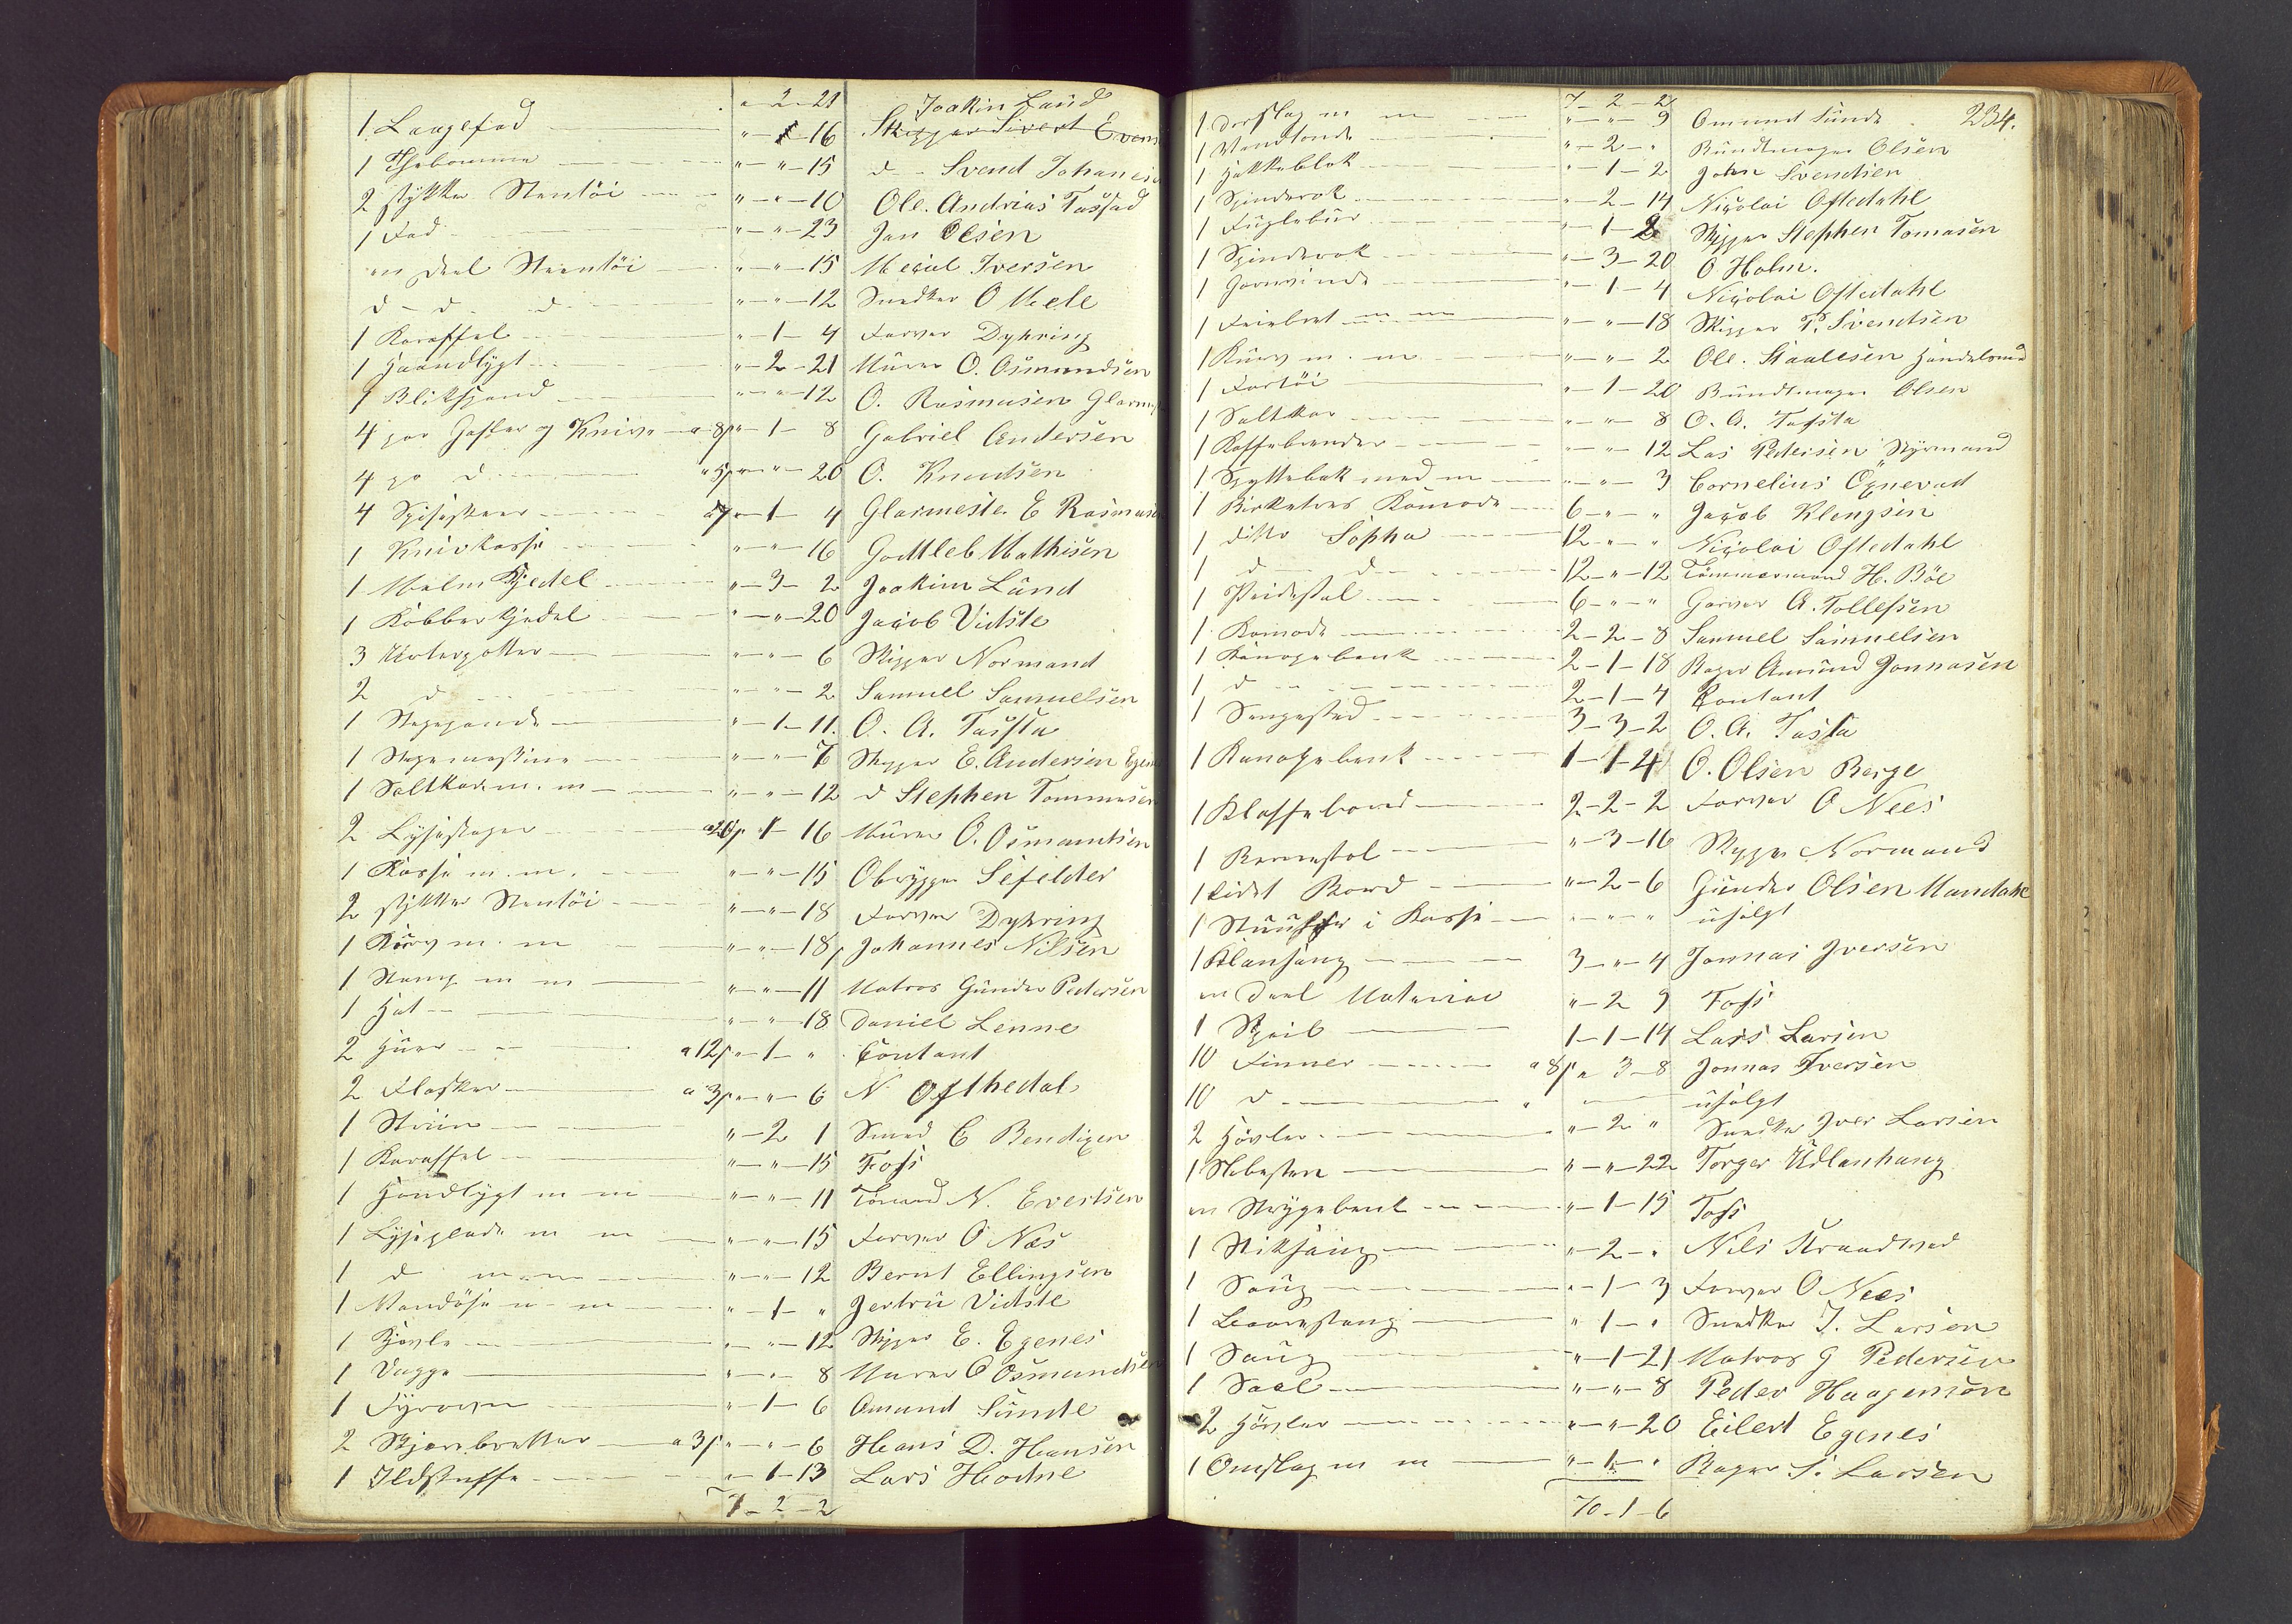 " 2 - 21 Joakin Lund
1 Laagefad " - 1 - 16 Skipper Sivert Evens
1 Thebomme " - " - 15 d - Svend Johanesen
2 stykker Stentöi " - " - 10 Ole. Andreas Tassad
1 Fad " - " - 23 Jan Olsen
en Deel Steentöi " - " - 15 Iversen
d - d d " - " - 12 Snedker O Mele
1 Karaffel " - 1 - 4 Farver Dyhring
1 Haandlygt " - 2 - 21 Murer O. Osmundsen
1 Blikspand " - " - 12 O. Rasmusen Glarm
4 par Gafler og Knive a 8 " - 1 - 8 Gabriel Andersen
4 pr d " - " - 20 O. Knudsen
4 Spiseskeer a 7 " - 1 - 4 Glarmester E Rasmusen
1 Knivkasse " - " - 16 Gottleb Mathisen
1 Malm Kjedel " - 3 - 2 Joakim Lund
1 Kobber Kjedel " - " - 20 Jacob Vidste
3 Urtepotter " - " - 6 Skipper Normand
2 d " - " - 2 Samuel Samuelsen
1 Stegepande " - 1 - 11. O. A. Tassta
1 Stegemaskine " - " - 7 Skipper E. Andersen
1 Saltkar m. m " - " - 12 d Stephen Tommesen
2 Lysestager a 20 " 1 - 16 Murer O. Osmundsen
1 Kasse m. m. " - " - 15 Sefelder
2 stykker Stentöi " - " - 18 Farver Dyhring
1 Kurv m. m " - " - 18 Johannes Nilsen
1 Stamp m m " - " - 11 Matros Gunder Pedersen
1 Hat " - " - 18 Daniel Lenne
2 Huer a 12 " - 1 - " Contant
2 Flasker a 3 " - " - 6 N Ofthedal
1 " - 2 1 Smed C Bendixen
1 Karaffel " - " - 15 Foss
1 Handlygt m m " - " - 11 N. Evertsen
1 Lyseplade m m " - " - 15 Farver O Næs
1 d m m " - " - 12 Bernt Ellingsen
1 Vandöse m m " - 1 - " Jertru Vidste
1 Hövle " - " - 12 Skipper E. Egenes
1 Vugge " - " - 8 Murer O Osmundsen
1 Fyrovn " - 1 - 6 Amund Sunde
2 Skjærebretter a 3 " - " - 6 Hans D. Hansen
1 Ildskuffe " - 1 - 13 Lars Hodne
7 - 2 - 2
7 - 2 - 2 234.
1 Dørslag m m " - " - 9 Omund Sunde
1 Vandtønde " - 2 - " Bundtmager Olsen
1 Hakkeblok " - 1 - 2 John Svendsen
1 Spinderok " - 2 - 14 Nicolai Oftedahl
1 Fuglebuur " - 1 - 2 Skipper Stephen Tomasen
1 Spinderok " - 3 - 20 O Holm.
1 Garnvinde " - 1 - 4 Nicolai Oftedahl
1 Feiebret m m " - " - 18 Skipper P. Svendsen
1 Kurv m. m " - " - 2 Ole. Staalesen Handelsmd
1 Fartöi " - 1 - 20 Bundtmager Olsen
1 Saltkar " - " - 8 O. A. Tassta
1 Kaffebrænder " - " - 12 Las Pedersen Styrmand
1 Spyttebak med m " - " - 3 Cornelius Ognevad
1 Birketræs Komode 6 - " - " Jacob Klengsen
1 ditto Sopha 12 - " - " Nicolai Oftedahl
1 d d 12 - " - 12 Tömmermand H. Böe
1 Peidestal 6 - " - " Garver A. Tollefsen
1 Komode 2 - 2 - 8 Samuel Samuelsen
1 Kanapebenk 2 - 1 - 18 Bager Amund Jonnasen
1 d 2 - 1 - 4 Contant
1 Sengested 3 - 3 - 2 O. A. Tasta
1 Kanapebenk 1 - 1 - 4 O. Olsen Berge
1 Klaffebord 2 - 2 - 2 Farver O Nees
1 Barnestol " - 3 - 16 Skipper Normand
1 Lidet Bord " - 2 - 6 Gunder Olsen Mandahl
1 i Kasse " - " - " usolgt
1 Klansaug 3 - " - 4 Jonnas Iversen
en Deel Materiae " - 2 9 Foss
1 Speil 1 - 1 - 14 Lars Larsen
10 Finner a 8 " 3 - 8 Jonnas Iversen
10 d " usolgt
2 Hövler " - 2 " Snedker Iver Larsen
1 Slibesten " - " - 22 Torger Udlanhaug
en Strygebenk " - 1 - 15 Foss
1 Stiksaug " - 2 - " Nils Straadved
1 Saug " - 1 - 3 Farver O Nees
1 " 1 - " Snedker I. Larsen
1 Saug " - 1 - 21 Matros G Pedersen
1 Sael " - " - 8 Peder Haagensen
2 Hövler " - " - 20 Eilert Egenes
1 Omslag m m " - 1 - " Bager S. Larsen
70 - 1 - 6